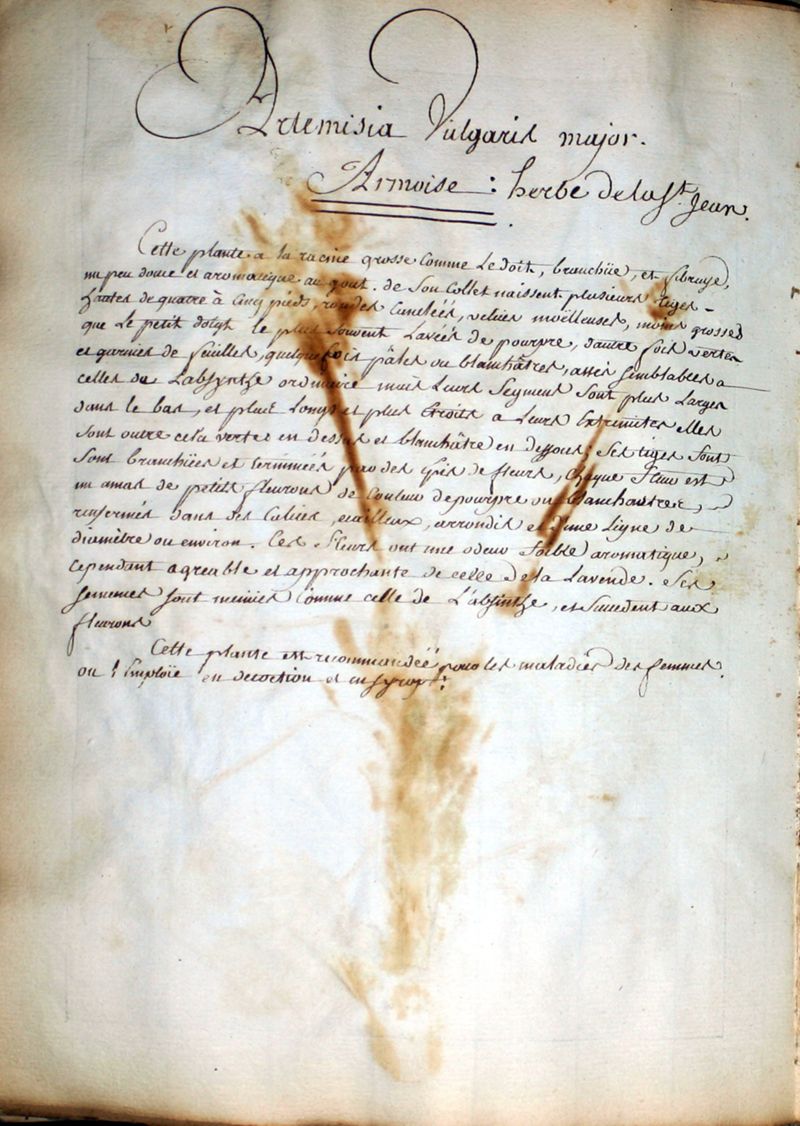 Artemisia Vulgaris major.
Armoise : herbe de la St. Jean.
Cette plante a la racine grosse comme Le doit, branchüe, et fibruse,
un peu douce et aromatique au gout. de Son Collet naissent plusieurs tiges
hautes de quatre à Cinq pieds, rondes Canelées, velues moëlleuses, moins grosses
que Le petit doigt le plus Souvent Lavées de pourpre, d'autre fois vertes
et garnies de feuilles, quelque fois pâles ou blanchâtres, assés Semblables a
celles de L'absynthe ordinaire mais Leurs Segmens Sont plus Larges
dans le bas, et plus Longs et plus Etroits a Leurs Extremités elles
Sont outre cela vertes en dessus et blanchâtre en dessous; Ses tiges Sont
Sont branchües et terminées par des épis de fleurs, chaque fleur est
un amas de petits fleurons de Couleur de pourpre ou blanchastres,
renfermés dans des Calices, ecailleux, arrondis et d'une Ligne de
diamètre ou environ. Ces fleurs ont une odeur foible aromatique,
cependant agreable et approchante de celle de la Lavende. Ses
semences sont menües comme celle de L'absinthe, et Succedent aux
fleurons
Cette plante est recommandéé pour les maladies des femmes.
on l'Emploïe en decoction et en syrop.